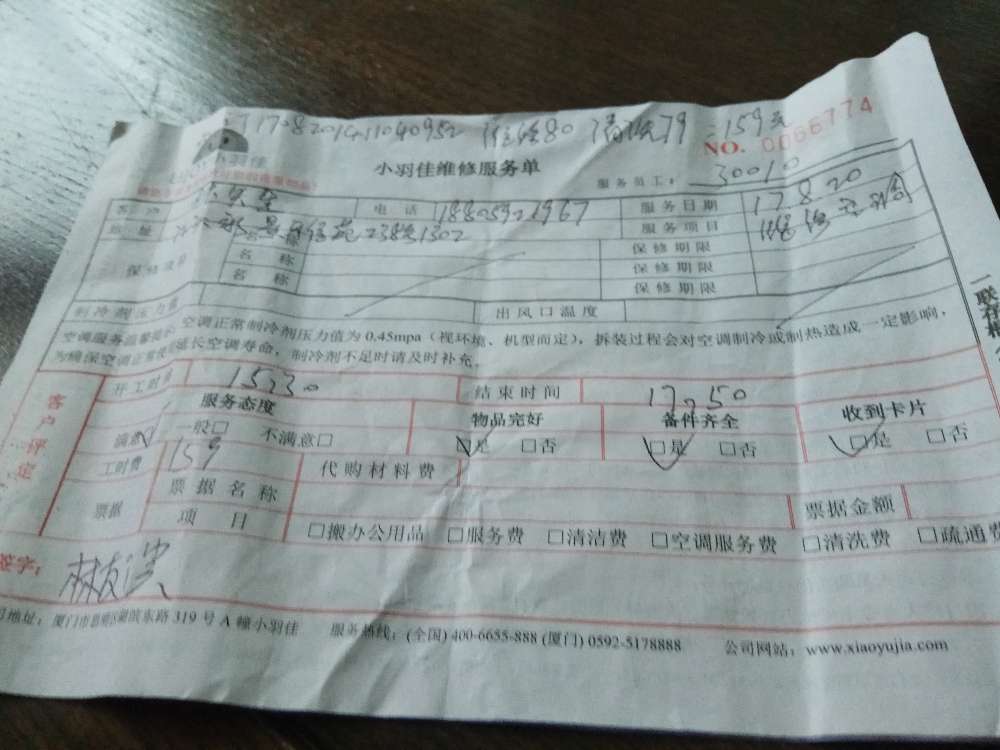 维修80 清洗79 =159元
小羽佳
小羽佳维修服务单
NO. 0066774
服务员工: 30010
客户 电话 18805921967 服务日期 17.8.20
地址 238#1302 服务项目
名称 保修期限
保修项目 名称 保修期限
名称 保修期限
制冷剂压力值 出风口温度
空调服务温馨提示:空调正常制冷剂压力值为 0.45mpa(视环境、机型而定),拆装过程会对空调制冷或制热造成一定影响,
为确保空调正常使用延长空调寿命,制冷剂不足时请及时补充。
一联存根
客户评定
开工时间 15:30 结束时间 17:50
服务态度 物品完好 备件齐全 收到卡片
满意 一般□ 不满意□ □是 □否 □是 □否 □是 □否
工时费 159 代购材料费
票据 票据名称 票据金额
项目 □搬办公用品 □服务费 □清洁费 □空调服务费 □清洗费 □疏通费
签字:
地址:厦门市思明区湖滨东路 319 号 A 幢小羽佳 服务热线:(全国) 400-6655-888 (厦门) 0592-5178888 公司网站:www.xiaoyujia.com